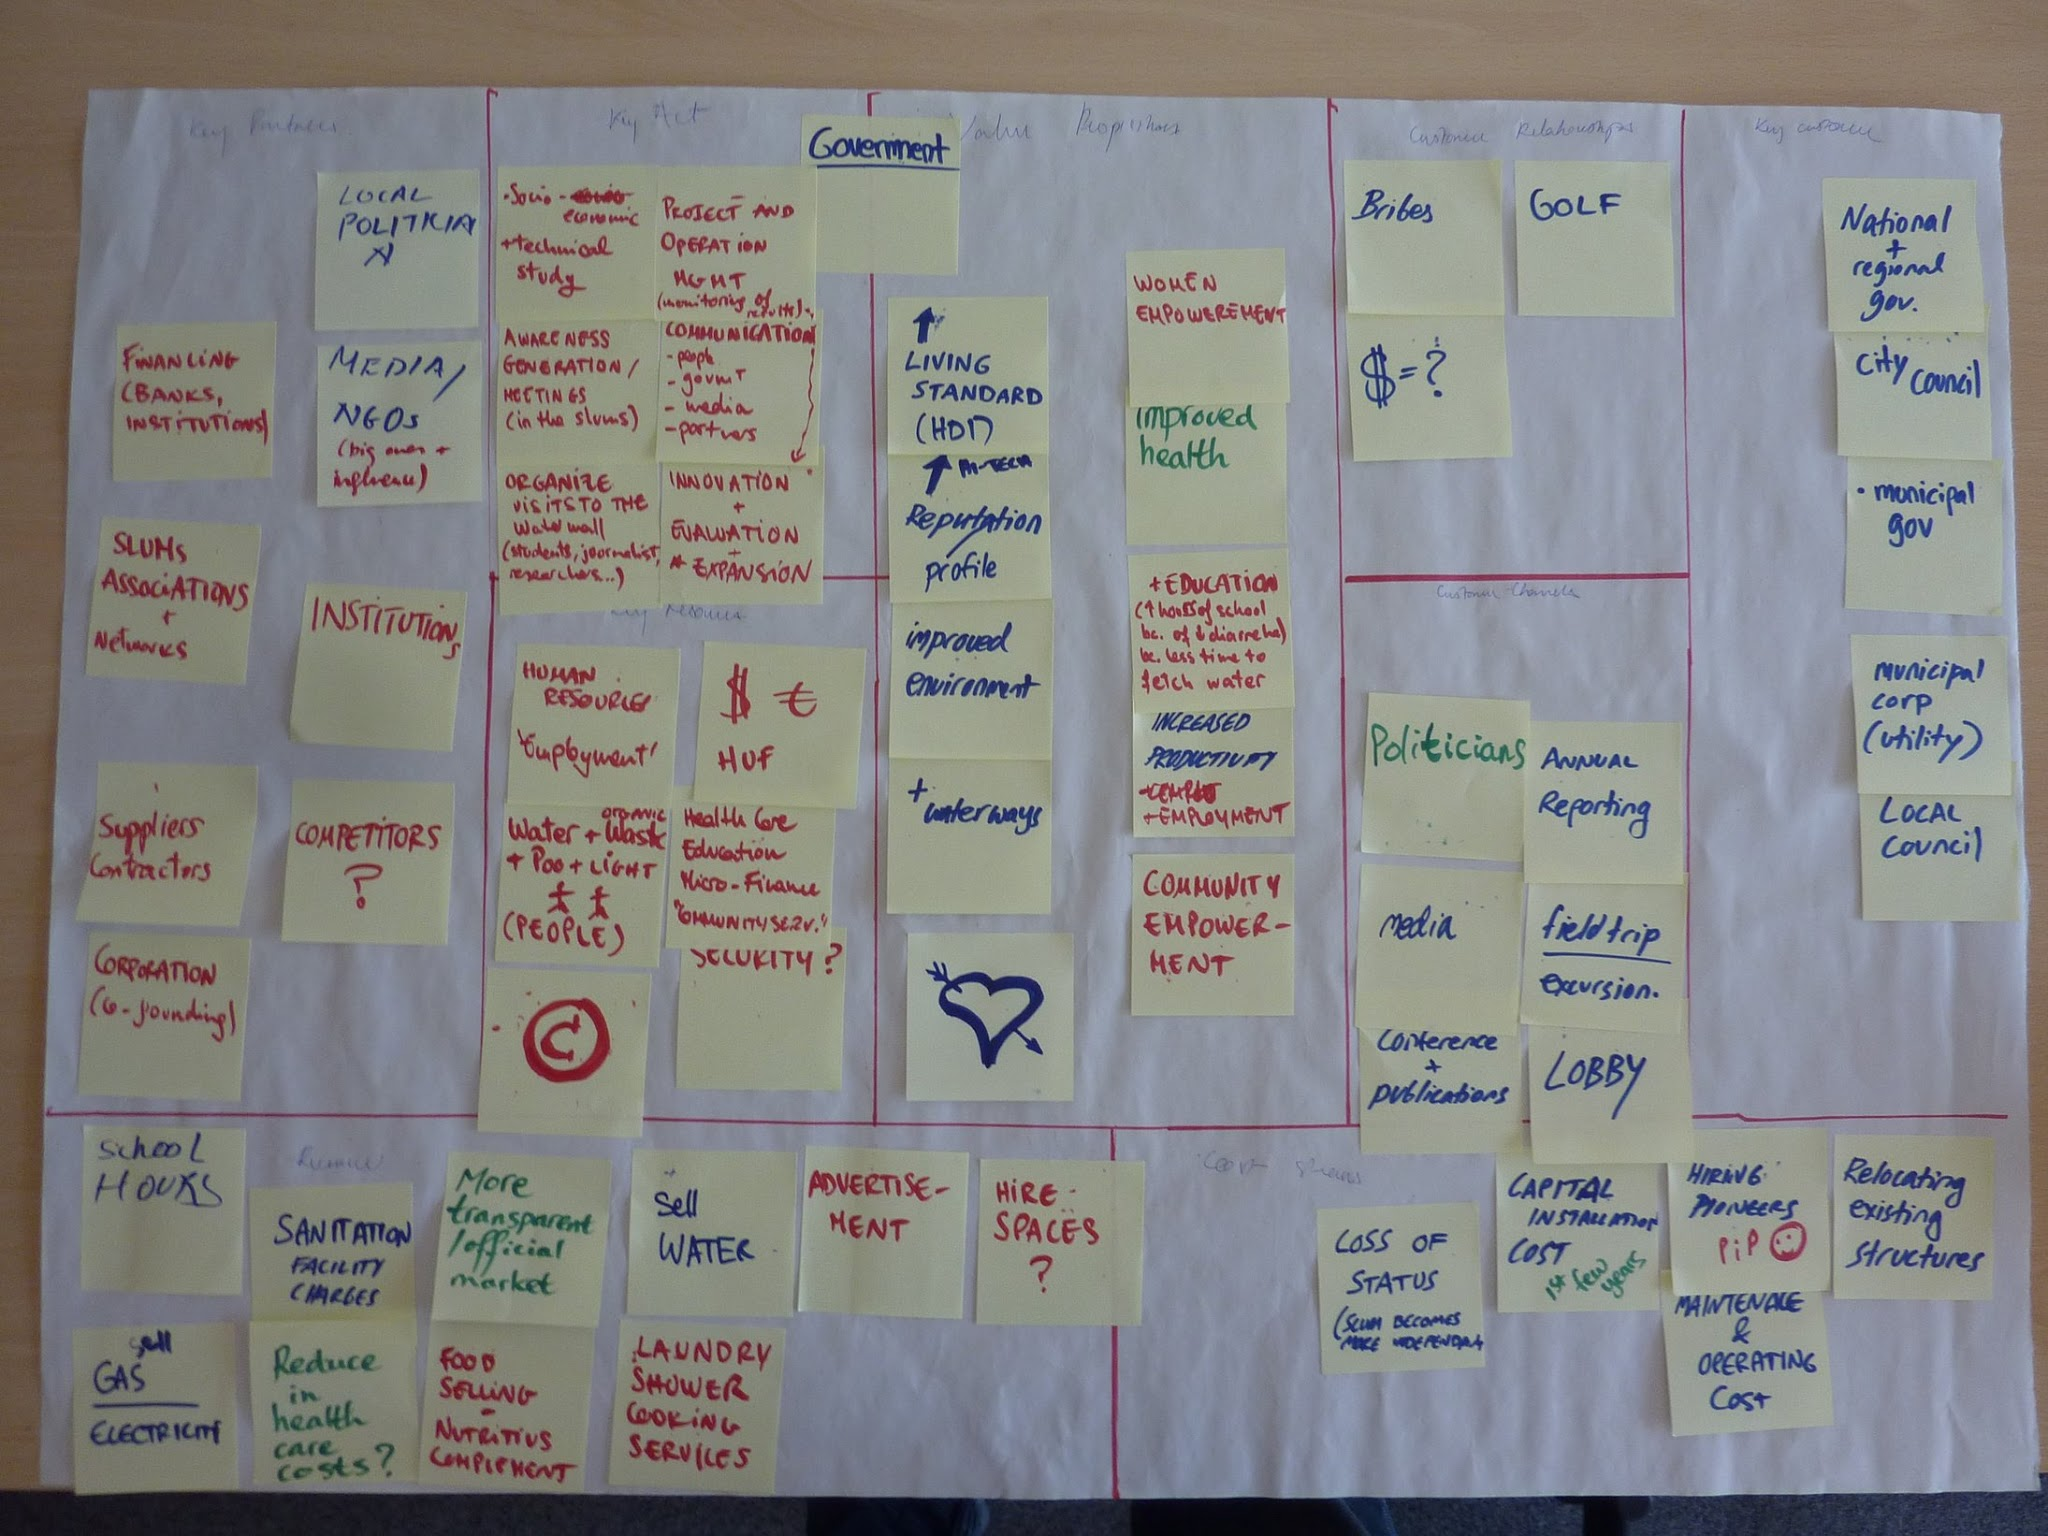 Key Partners
LOCAL
POLITICIA
N
FINANCING
(BANKS,
INSTITUTIONS)
MEDIA/
NGOs
(big ones +
influence)
SLUMS
ASSOCIATIONS
+
Networks
INSTITUTIONS
Suppliers
Contractors
COMPETITORS
?
CORPORATION
(co-founding)
Key Act
Government
• Socio-
economic
+ technical
study
PROJECT AND
OPERATION
MGMT
(monitoring of
results)
AWARENESS
GENERATION/
MEETINGS
(in the slums)
COMMUNICATION
- people
- govmt
- media
- partners
ORGANIZE
VISITS TO THE
Watermall
(students, journalist,
researchers...)
INNOVATION
+
EVALUATION
+
EXPANSION
Key resource
HUMAN
RESOURCES
'Employment'
$ €
HUF
ORGANIC
Water + Waste
+ Poo + LIGHT
(PEOPLE)
Health Care
Education
Micro-Finance
"COMMUNITY SERV."
SECURITY?
©
Value Propositions
LIVING
STANDARD
(HDI)
HI-TECH
Reputation
profile
improved
environment
+ waterways
WOMEN
EMPOWEREMENT
improved
health
+ EDUCATION
(↑ hours of school
bc. of ↓ diarreha)
bc. less time to
fetch water
INCREASED
PRODUCTIVITY
+ EMPLOYMENT
COMMUNITY
EMPOWER-
MENT
Customer Relationships
Bribes
GOLF
$ = ?
Customer Channels
Politicians
ANNUAL
Reporting
media
field trip
excursion.
Conference
+
publications
LOBBY
Key customer
National
+
regional
gov.
City Council
• municipal
gov
municipal
corp
(utility)
LOCAL
Council
SCHOOL
HOURS
SANITATION
FACILITY
CHARGES
More
transparent
/official
market
Sell
WATER
ADVERTISE-
MENT
HIRE-
SPACES
?
sell
GAS
ELECTRICITY
Reduce
in
health
care
costs?
FOOD
SELLING
-
NUTRITIUS
COMPLEMENT
LAUNDRY
SHOWER
COOKING
SERVICES
Cost Streams
LOSS OF
STATUS
(SLUM BECOMES
MORE INDEPENDANT
CAPITAL
INSTALLATION
COST
1st few
years
HIRING
PIONEERS
PiP
Relocating
existing
structures
MAINTENACE
&
OPERATING
Cost